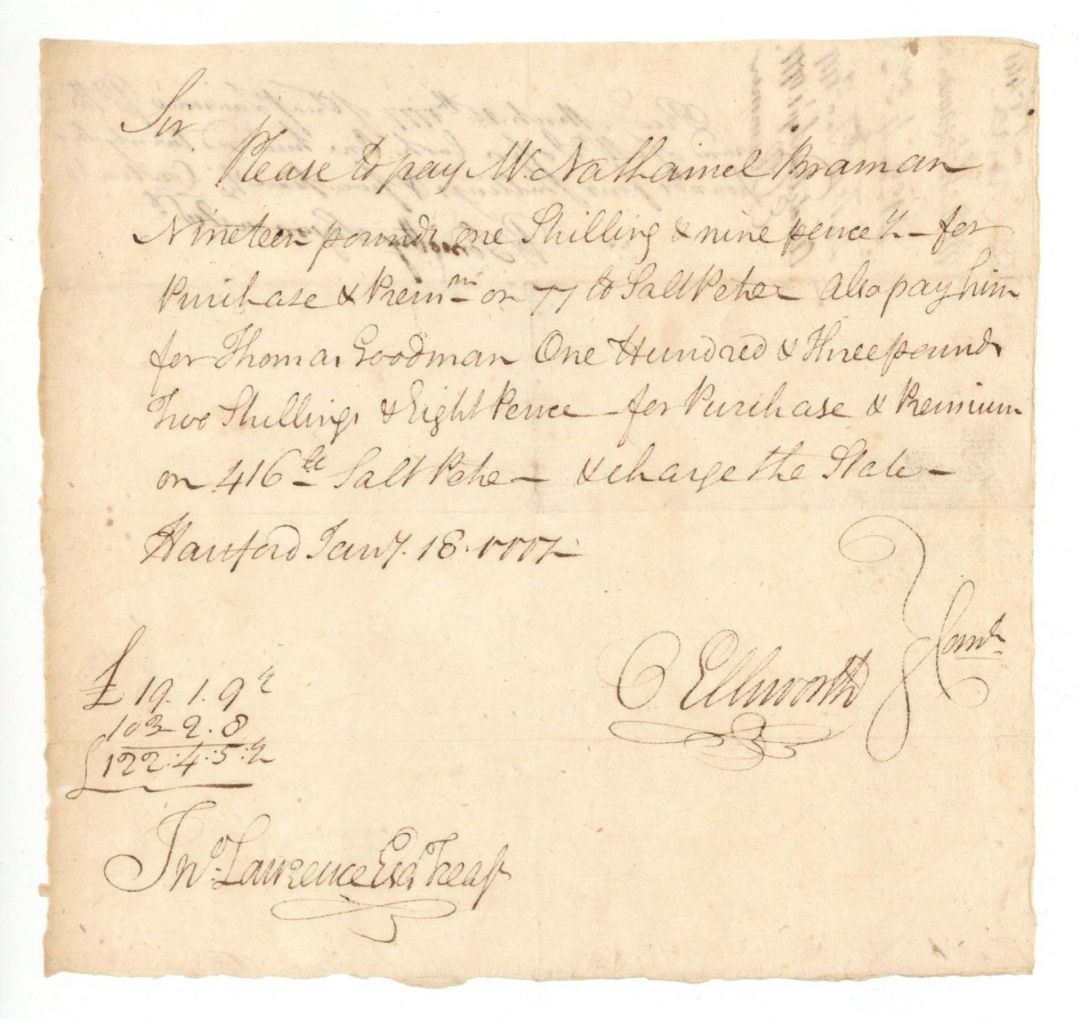 Sir
Please to pay Mr. Nathaniel Braman
Nineteen pounds one Shilling & nine pence ½ – for
Purchase & Prem.m on 77 lb SaltPeter Also pay him
for Thomas Goodman One Hundred & Three pounds
Two Shillings & Eight Pence – for Purchase & Premium
on 416 lb Salt Peter – & charge the State –
Hartford Jany. 18. 1777
£ 19. 1. 9 ½
103 2. 8
£122:4:5:½
O Ellsworth } Comte
Jno. Lawrence Esqr. Treasr